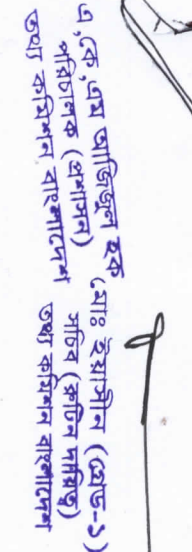 এ,কে,এম আজিজুল হক
পরিচালক (প্রশাসন)
তথ্য কমিশন বাংলাদেশ
মোঃ ইয়াসীন (গ্রেড-১)
সচিব (রুটিন দায়িত্ব)
তথ্য কমিশন বাংলাদেশ